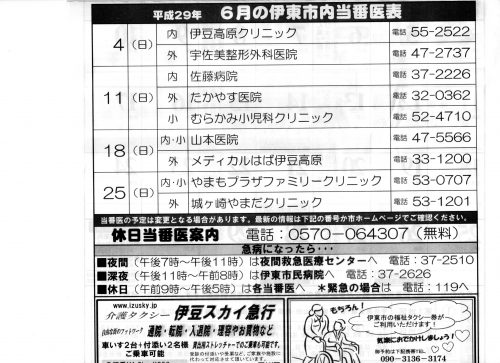 平成29年 6月の伊東市内当番医表
4(日) 内 伊豆高原クリニック 電話 55-2522
外 宇佐美整形外科医院 電話 47-2737
11(日) 内 佐藤病院 電話 37-2226
外 たかやす医院 電話 32-0362
小 むらかみ小児科クリニック 電話 52-4710
18(日) 内・小 山本医院 電話 47-5566
外 メディカルはば伊豆高原 電話 33-1200
25(日) 内・小 やまもプラザファミリークリニック 電話 53-0707
外 城ヶ崎やまだクリニック 電話 53-1201
当番医の予定は変更となる場合があります。最新の情報は下記の番号か市ホームページでご確認ください。
休日当番医案内 電話:0570-064307(無料)
急病になったら・・・
■夜間(午後7時~午後11時)は夜間救急医療センターへ 電話:37-2510
■深夜(午後11時~午前8時)は伊東市民病院へ 電話:37-2626
■休日(午前9時~午後5時)は各当番医へ *緊急の場合は 電話:119へ
www.izusky.jp
介護タクシー 伊豆スカイ急行
通院・転院・入退院・理容やお買物など
車いす2台+付添い2名様
ご乗車可能
もちろん!
伊東市の福祉タクシー券が
ご利用いただけます!
気楽においでかけしましょう♪
090-3136-3174